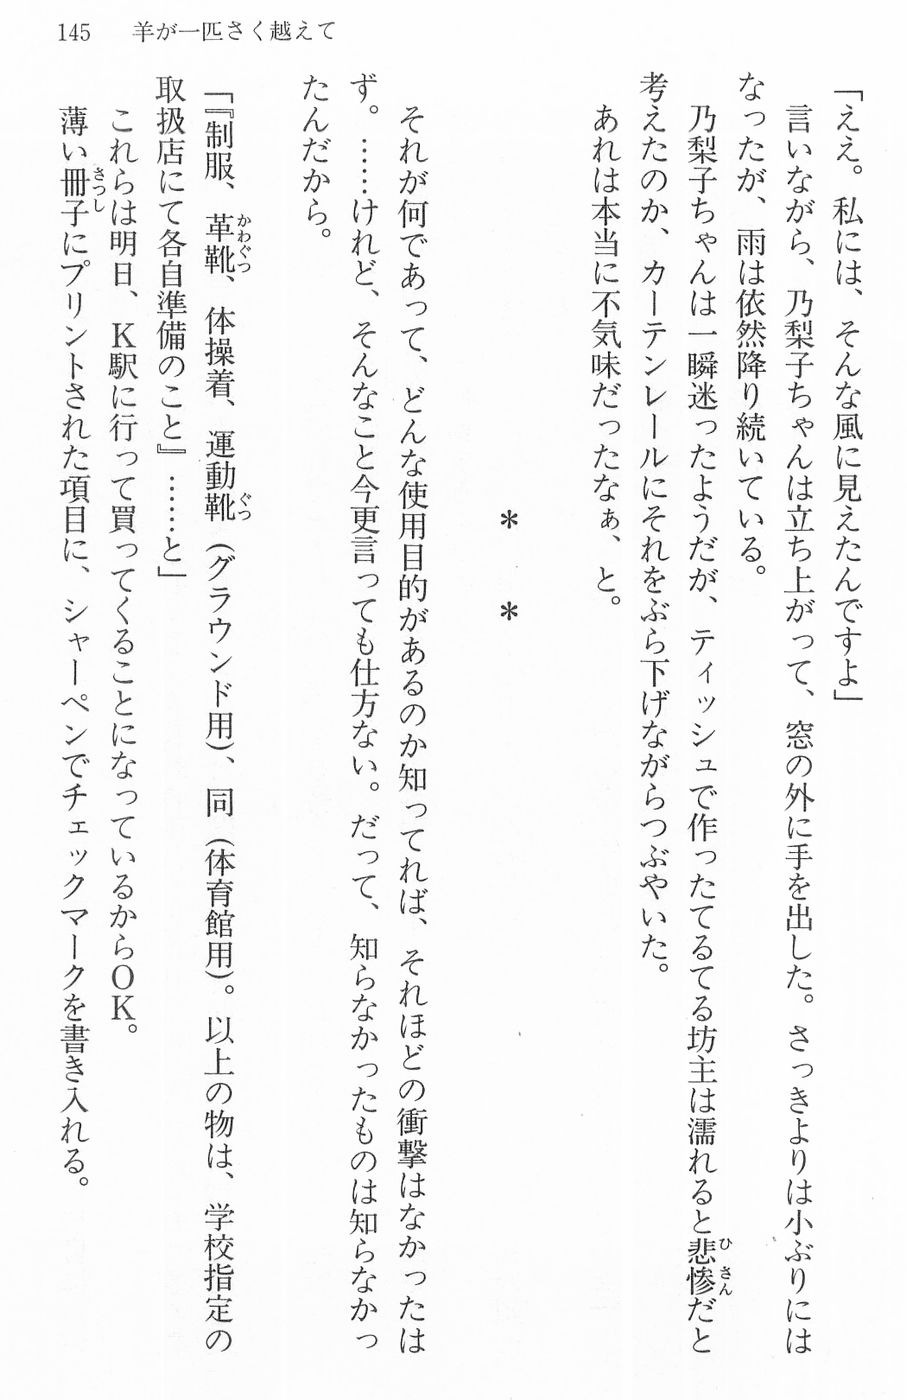 145 羊が一匹さく越えて
「ええ。私には、そんな風に見えたんですよ」
言いながら、乃梨子ちゃんは立ち上がって、窓の外に手を出した。さっきよりは小ぶりには
なったが、雨は依然降り続いている。
乃梨子ちゃんは一瞬迷ったようだが、ティッシュで作ったてるてる坊主は濡れると悲惨だと
考えたのか、カーテンレールにそれをぶら下げながらつぶやいた。
あれは本当に不気味だったなぁ、と。
＊ ＊
それが何であって、どんな使用目的があるのか知ってれば、それほどの衝撃はなかったは
ず。……けれど、そんなこと今更言っても仕方ない。だって、知らなかったものは知らなかっ
たんだから。
「『制服、革靴、体操着、運動靴（グラウンド用）、同（体育館用）。以上の物は、学校指定の
取扱店にて各自準備のこと』……と」
これらは明日、Ｋ駅に行って買ってくることになっているからＯＫ。
薄い冊子にプリントされた項目に、シャーペンでチェックマークを書き入れる。